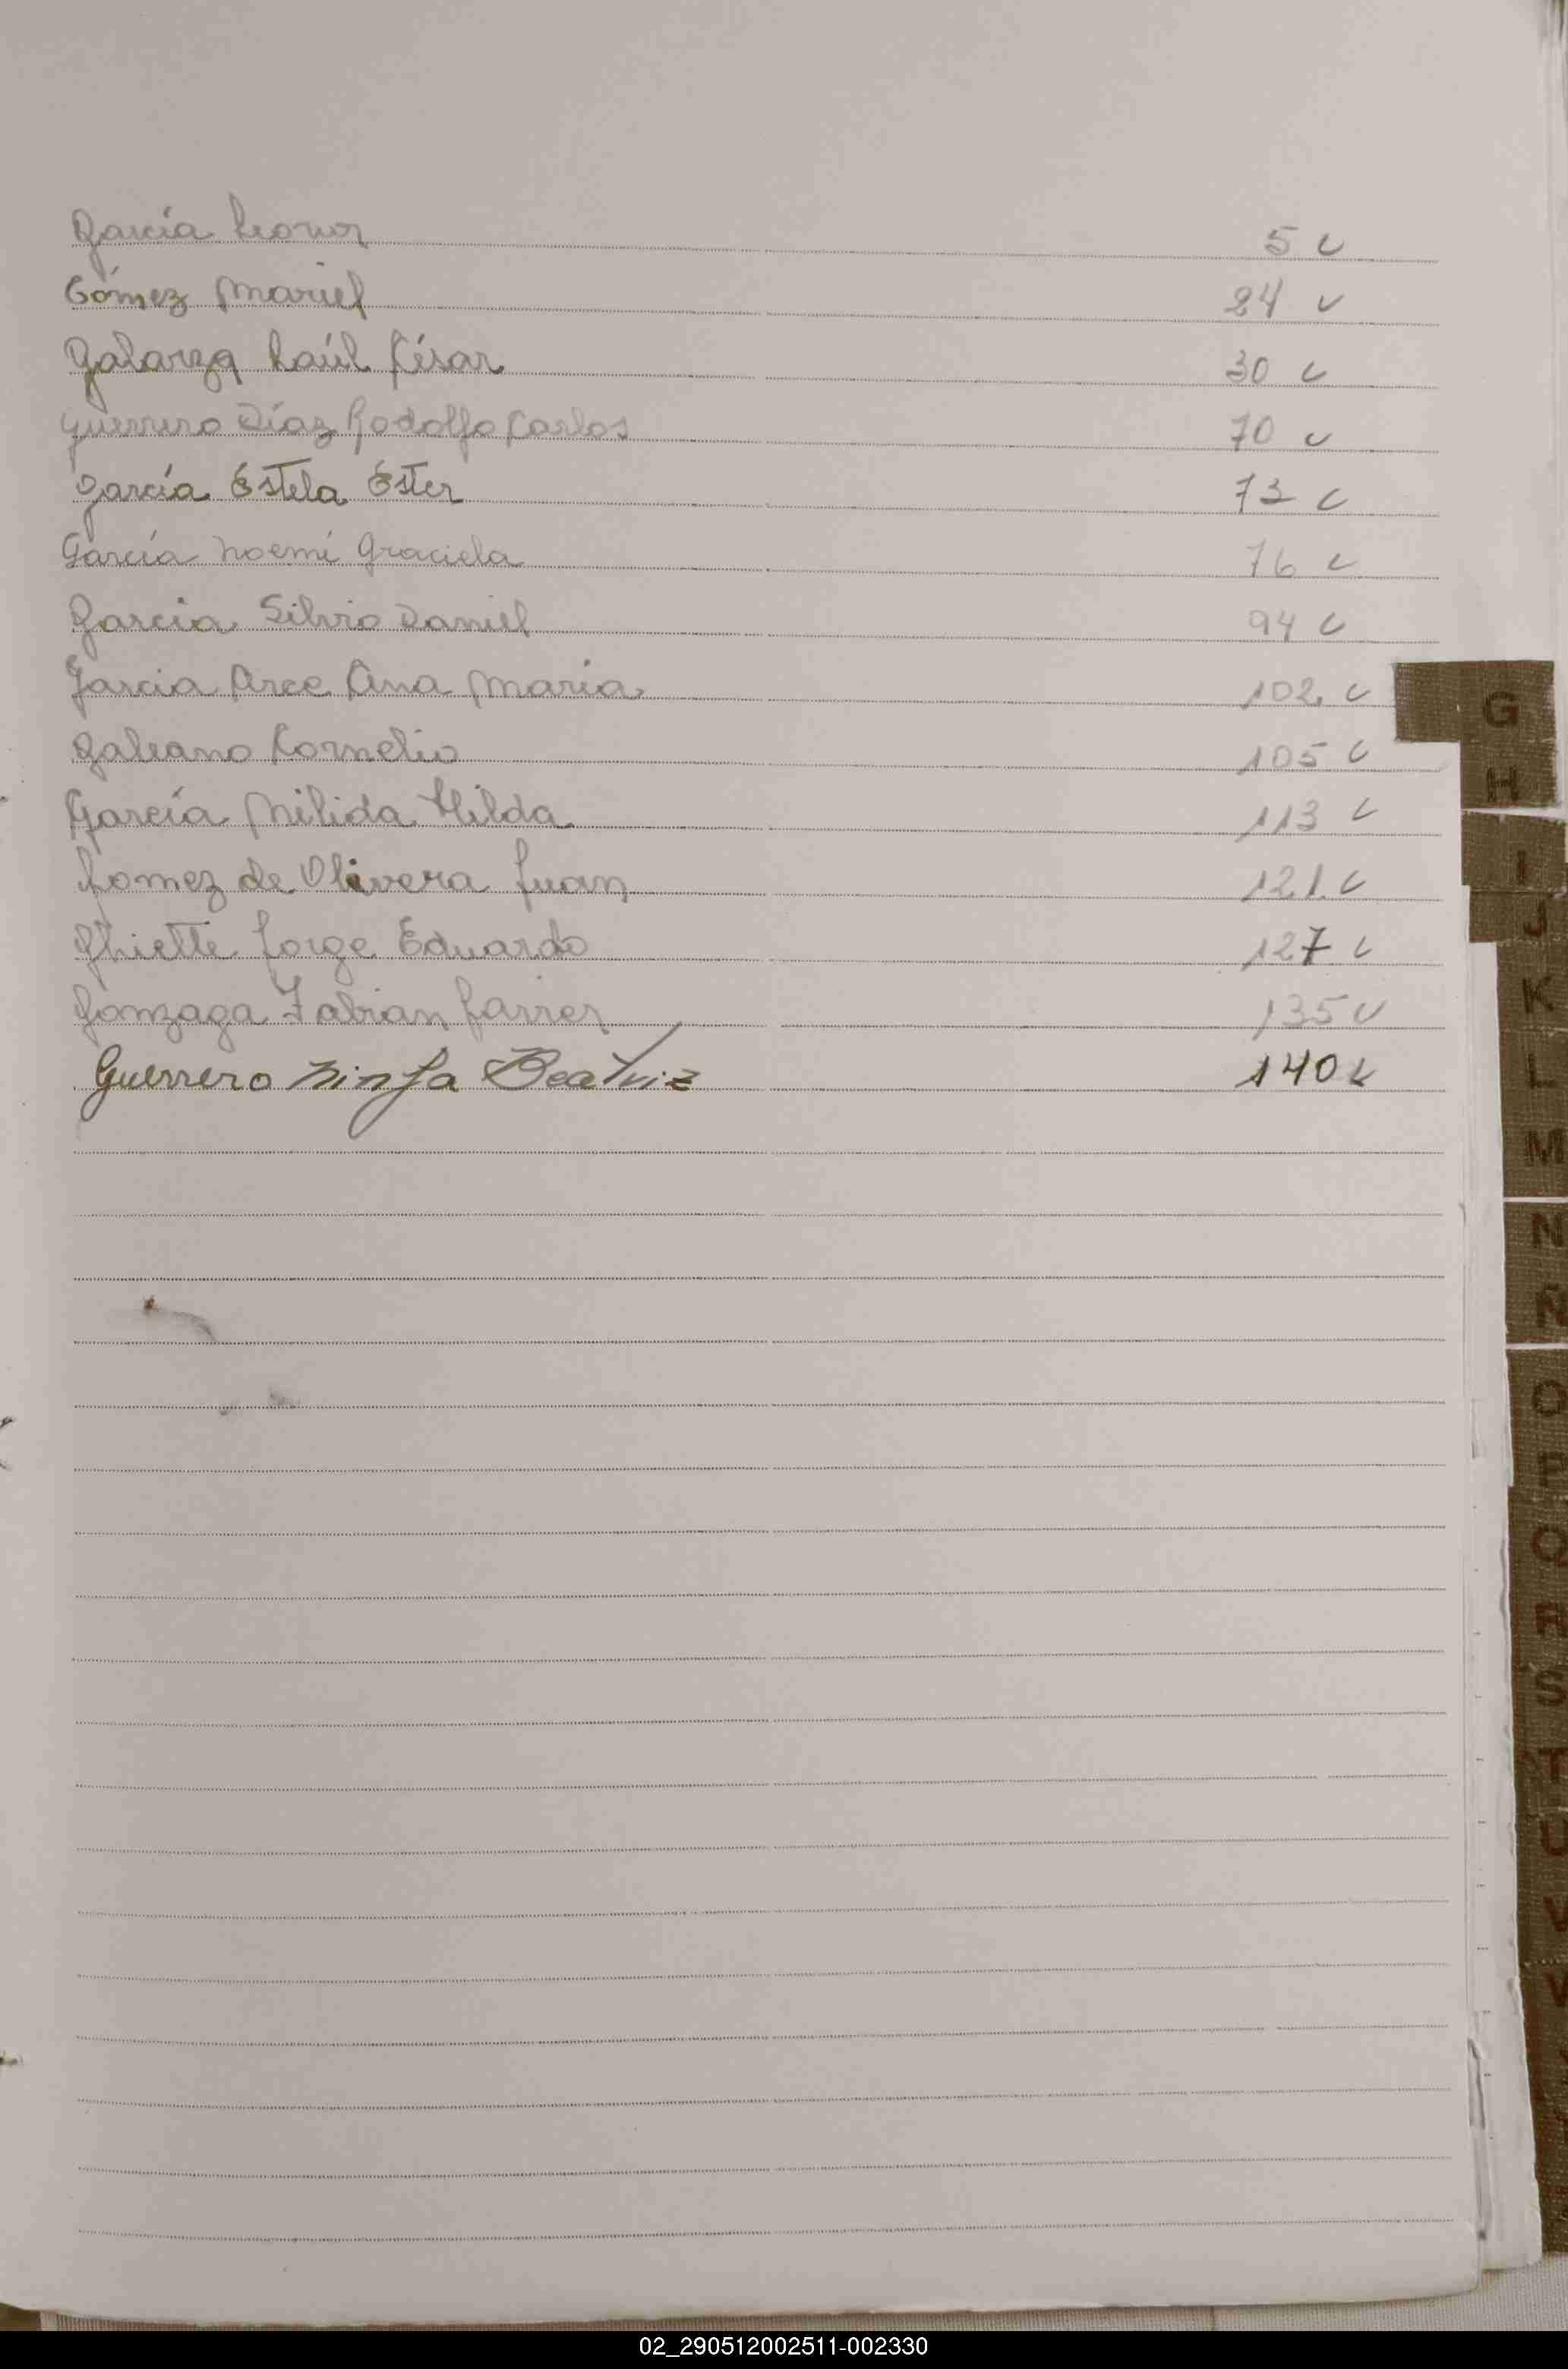 García Leonor 5 ✓
Gómez Mariel 24 ✓
Galarza Raúl César 30 ✓
Guerrero Díaz Rodolfo Carlos 70 ✓
García Estela Ester 73 ✓
García Noemí Graciela 76 ✓
Garcia Silvio Daniel 94 ✓
Garcia Arce Ana María 102 ✓
Galeano Cornelio 105 ✓
García Nilida Hilda 113 ✓
Gomez de Olivera Juan 121 ✓
Ghiette Jorge Eduardo 127 ✓
Gonzaga Fabian Javier 135 ✓
Guerrero Ninfa Beatriz 140 ✓
G
H
I
J
K
L
M
N
Ñ
O
P
Q
R
S
T
U
V
02_290512002511-002330